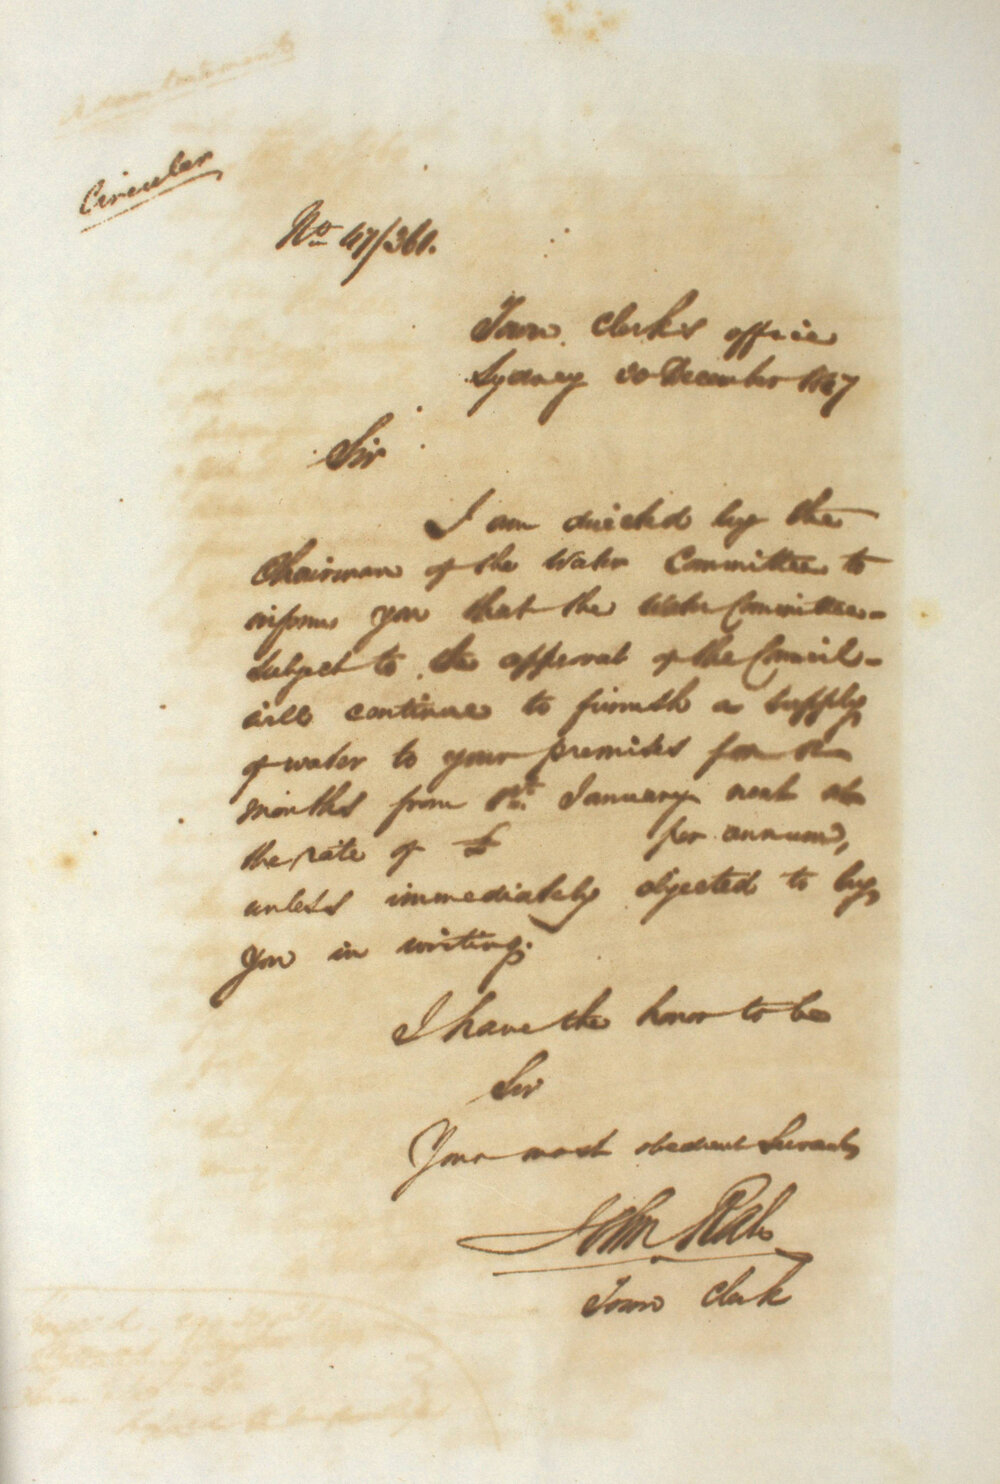 Advertisement
Circular
No 47/361.
Town Clerk's office
Sydney 20 December 1847
Sir
I am directed by the
Chairman of the Water Committee to
inform you that the Water Committee -
subject to the approval of the Council -
will continue to furnish a supply
of water to your premises for
months from 1st January next at
the rate of £ per annum,
unless immediately objected to by
you in writing.
I have the honor to be
Sir
Your most obedient Servant
John Rae
Town Clerk